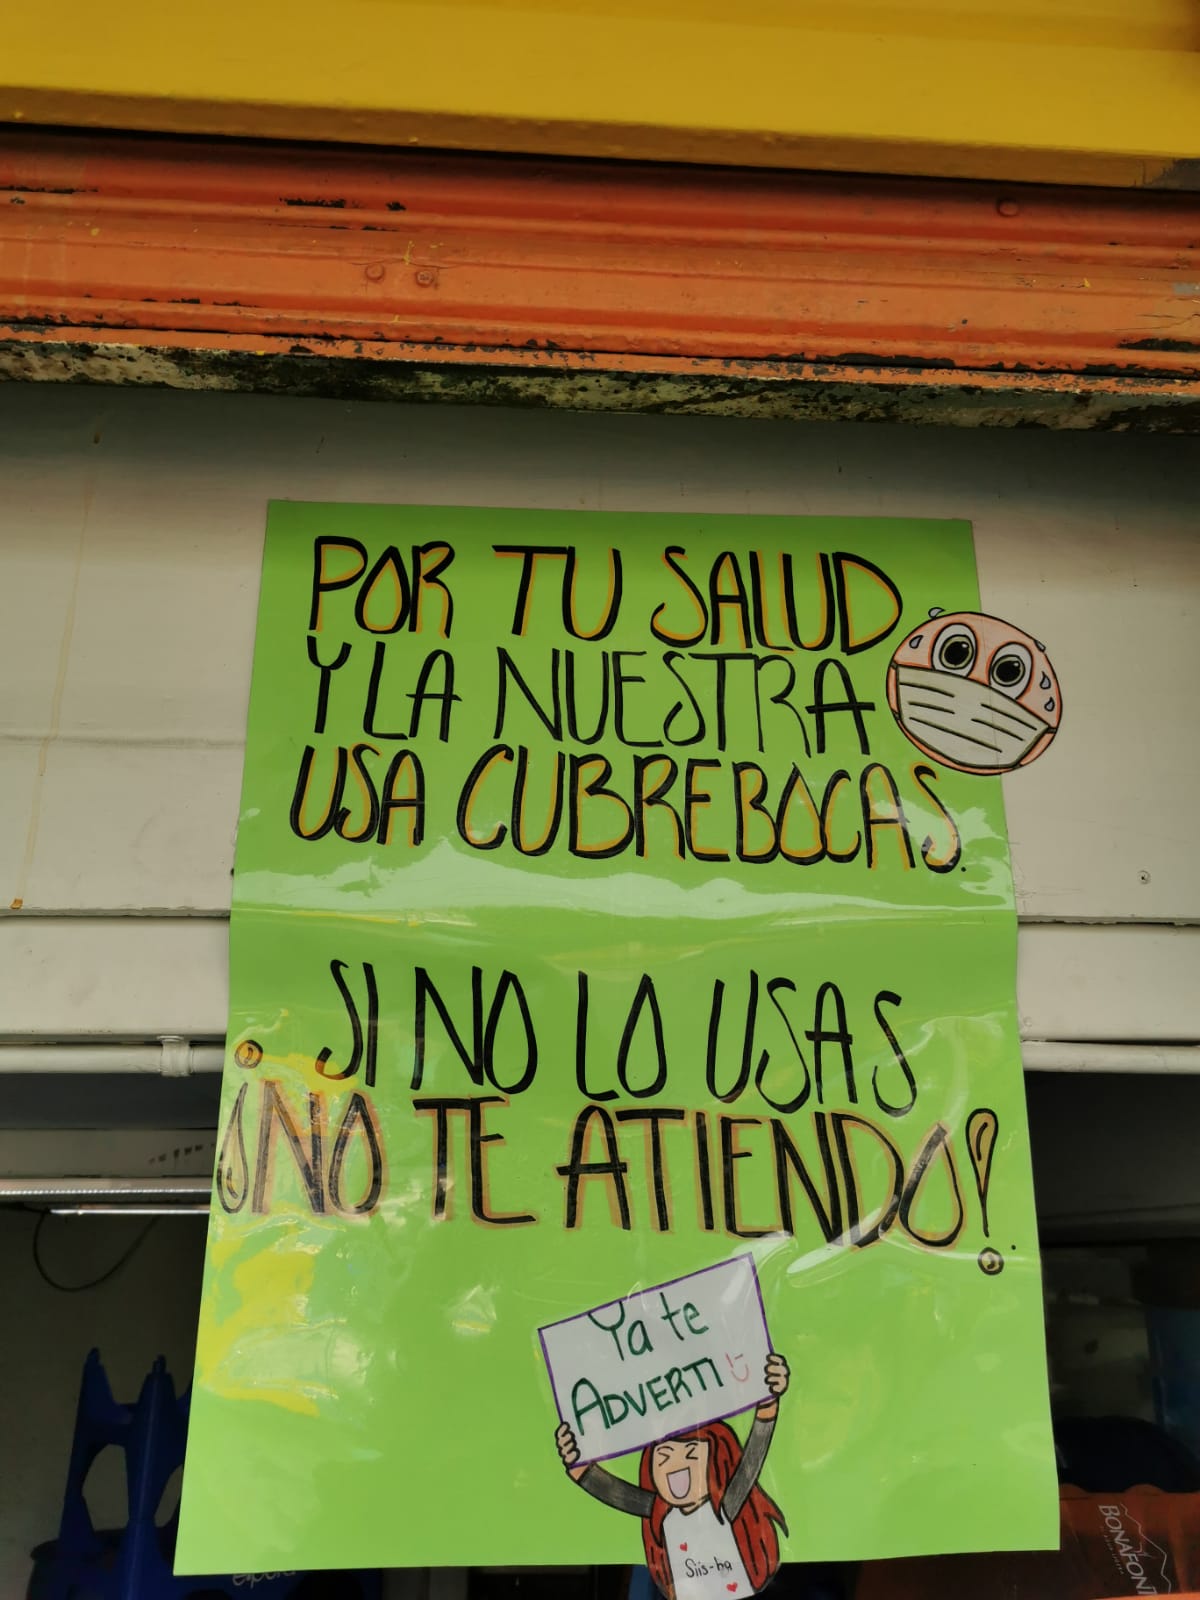 POR TU SALUD
Y LA NUESTRA
USA CUBREBOCAS.
SI NO LO USAS
¡NO TE ATIENDO!
Ya te
ADVERTI
Siis-ha
BONAFONT